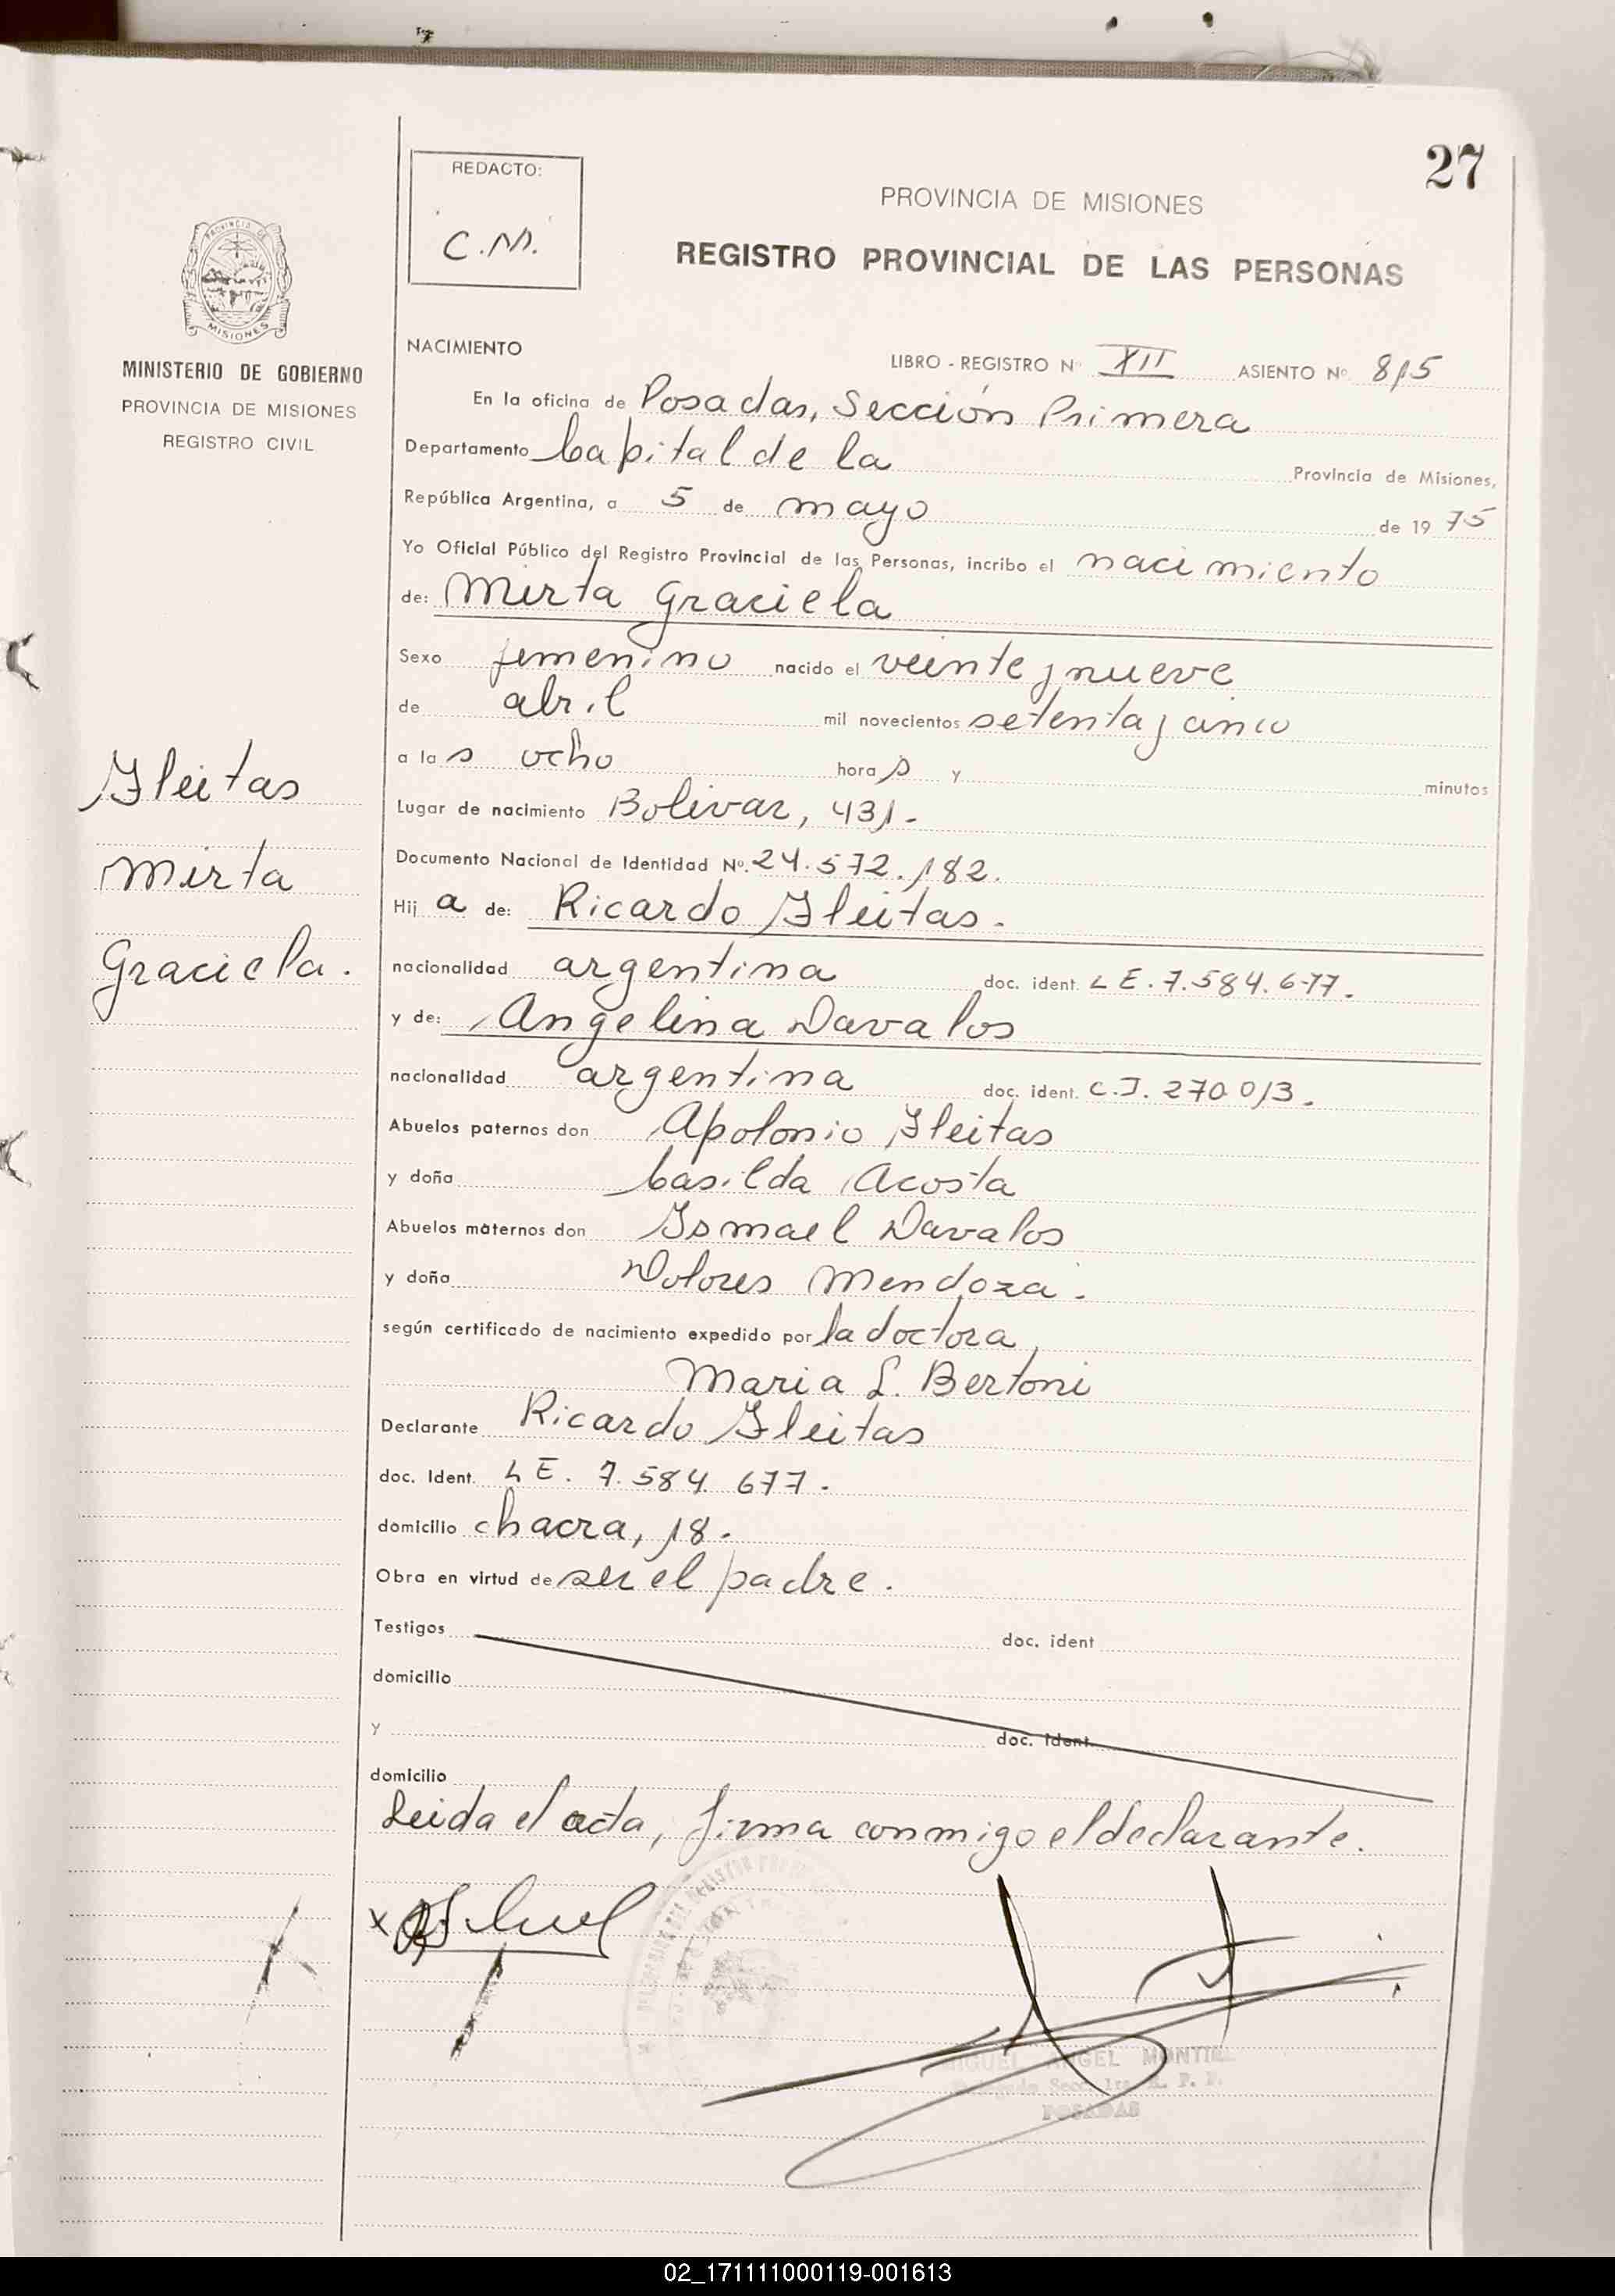 27
REDACTO:
C.M.
PROVINCIA DE MISIONES
REGISTRO PROVINCIAL DE LAS PERSONAS
PROVINCIA DE
MISIONES
MINISTERIO DE GOBIERNO
PROVINCIA DE MISIONES
REGISTRO CIVIL
NACIMIENTO
LIBRO - REGISTRO Nº XII ASIENTO Nº 815
En la oficina de Posadas, Sección Primera
Departamento Capital de la Provincia de Misiones,
República Argentina, a 5 de mayo de 19 75
Yo Oficial Público del Registro Provincial de las Personas, incribo el nacimiento
de: Mirta Graciela
Sexo femenino nacido el veinte y nueve
de abril mil novecientos setenta y cinco
a la s ocho hora s y minutos
Lugar de nacimiento Bolivar, 431.-
Documento Nacional de Identidad Nº. 24.572.182.
Hij a de: Ricardo Fleitas.
nacionalidad argentina doc. ident. L E. 7.584.677.
y de: Angelina Davalos
nacionalidad argentina doc. ident. C.I. 270.013.
Abuelos paternos don Apolonio Fleitas
y doña Casilda Acosta
Abuelos maternos don Ismael Davalos
y doña Dolores Mendoza.
según certificado de nacimiento expedido por la doctora
Maria L. Bertoni
Declarante Ricardo Fleitas
doc. Ident. L E. 7.584 677.
domicilio chacra, 18.
Obra en virtud de ser el padre.
Testigos doc. ident
domicilio
y doc. ident.
domicilio
Leida el acta, firma conmigo el declarante.
Fleitas
Mirta
Graciela.
x
MIGUEL ANGEL MONTIEL
POSADAS
02_171111000119-001613